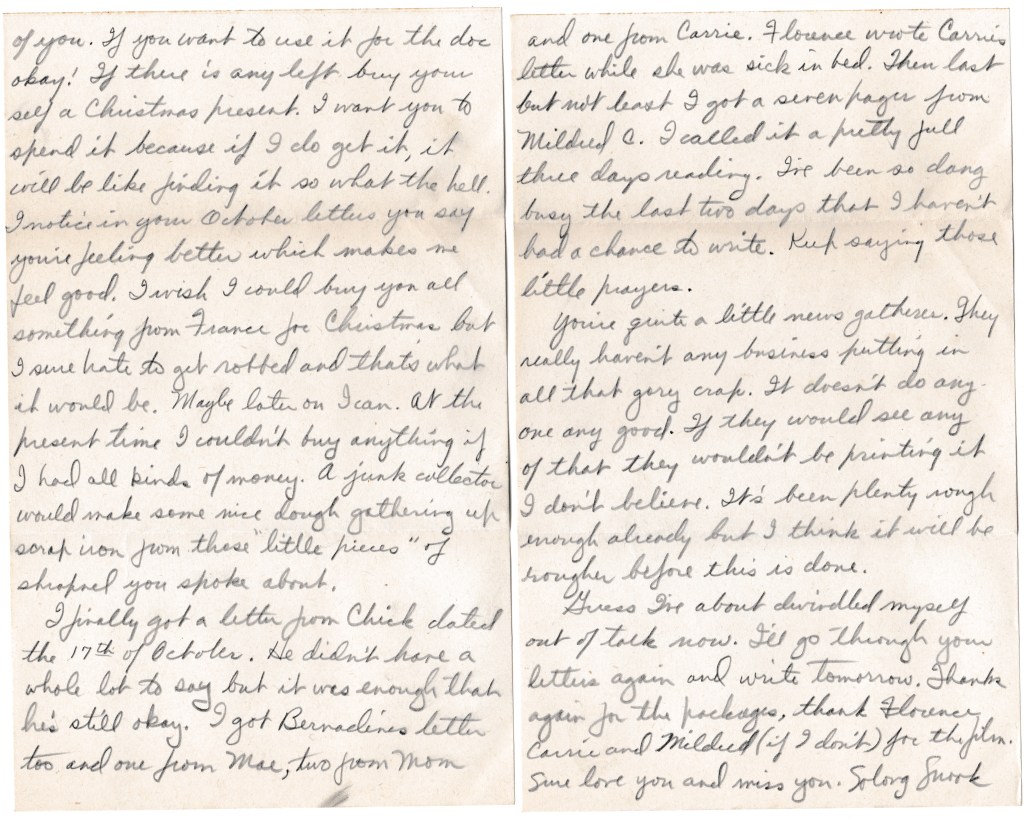 of you. If you want to use it for the doc
okay! If there is any left buy your
self a Christmas present. I want you to
spend it because if I do get it, it
will be like finding it so what the hell.
I notice in your October letters you say
you're feeling better which makes me
feel good. I wish I could buy you all
something from France for Christmas but
I sure hate to get robbed and that's what
it would be. Maybe later on I can. At the
present time I couldn't buy anything if
I had all kinds of money. A junk collector
would make some nice dough gathering up
scrap iron from those "little pieces" of
shrapnel you spoke about.
I finally got a letter from Chick dated
the 17th of October. He didn't have a
whole lot to say but it was enough that
he's still okay. I got Bernadines letter
too and one from Mae, two from Mom
and one from Carrie. Florence wrote Carries
letter while she was sick in bed. Then last
but not least I got a seven pager from
Mildred C. I called it a pretty full
three days reading. I've been so dang
busy the last two days that I haven't
had a chance to write. Keep saying those
little prayers.
You're quite a little news gatherer. They
really haven't any business putting in
all that gory crap. It doesn't do any-
one any good. If they would see any
of that they wouldn't be printing it
I don't believe. It's been plenty rough
enough already but I think it will be
rougher before this is done.
Guess I've about dwindled myself
out of talk now. I'll go through your
letters again and write tomorrow. Thanks
again for the packages, thank Florence
Carrie and Mildred (if I don't) for the film.
Sure love you and miss you. Solong Snork